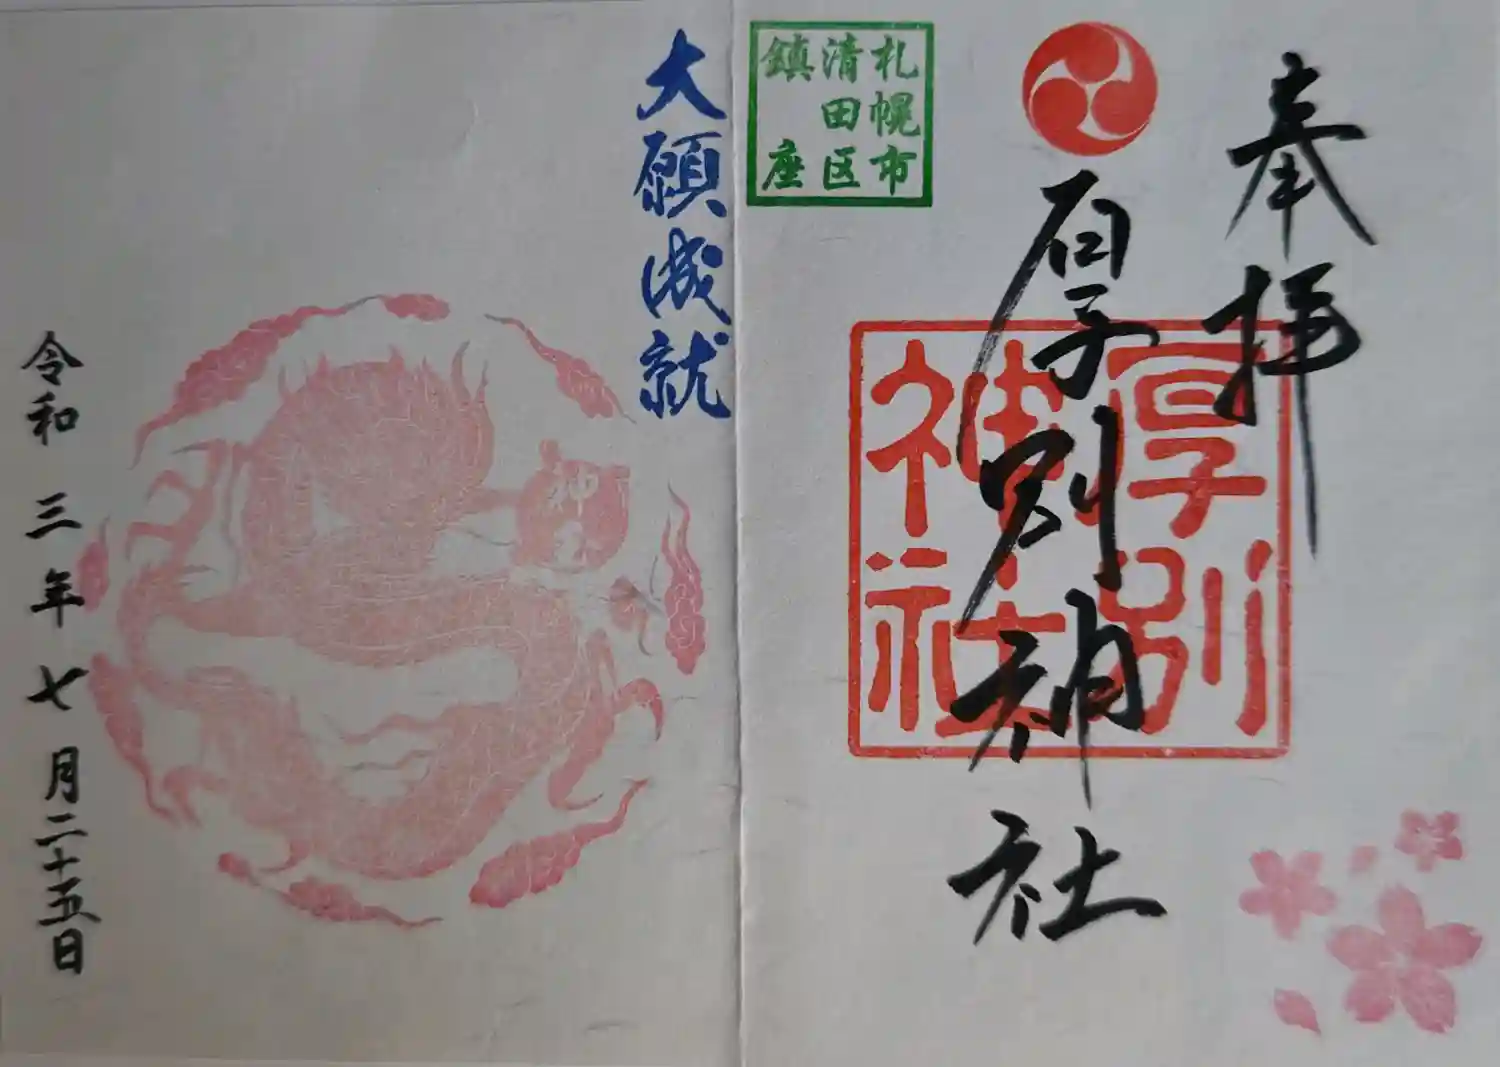 奉拝
厚別神社
厚別
神社
札幌市
清田区
鎮座
大願成就
神
令和三年七月二十五日